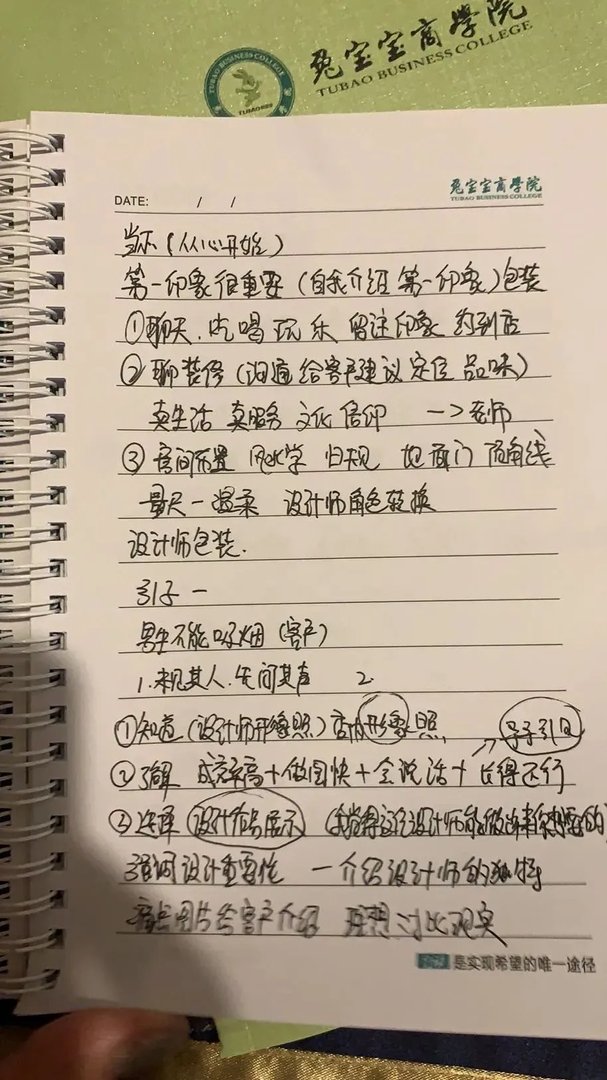 兔宝宝商學院
TUBAO BUSINESS COLLEGE
TUBAO BUSINESS COLLEGE
TUBAO
兔宝宝商學院
TUBAO BUSINESS COLLEGE
DATE: / /
当下(从心开始)
第一印象很重要(自我介绍 第一印象)包装
①聊天.吃喝玩乐 留注印象 约到店
②聊装修(沟通给客户建议 定位 品味)
卖生活 卖服务 文化 信仰 —>老师
③房间布置 风水学 归规 地面门 顶角线
量尺一温柔 设计师角色转换
设计师包装.
引子一
男生不能吸烟(客户)
1.未见其人.先闻其声 2.
①知道(设计师形象照)店内形象照 → 导手引见
②了解 成交率高+做图快+会说话+长得还行
③选择 设计布局展示 (我觉得这位设计师能做出来你想要的
强调设计重要性 一介绍设计师的独特
图片给客户介绍 理想对比现实
是实现希望的唯一途径